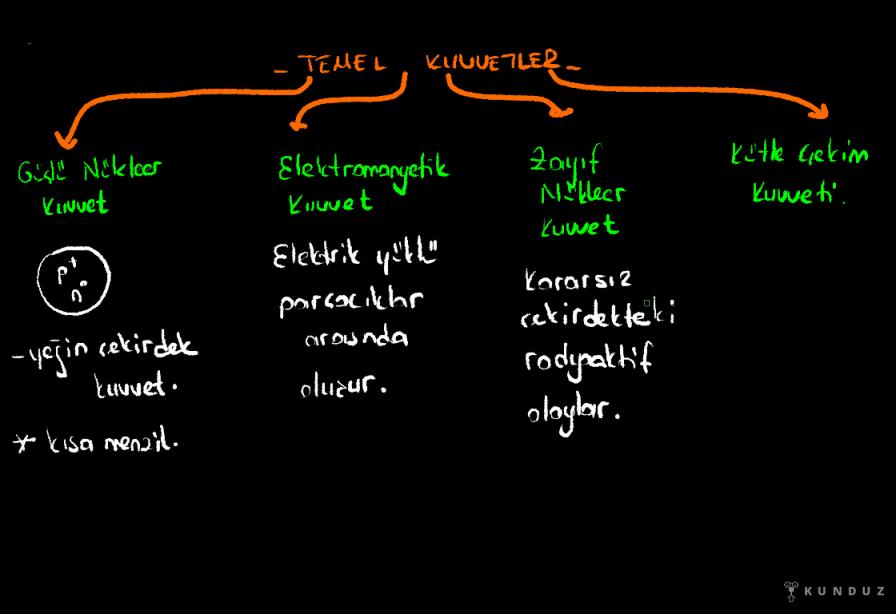 - TEMEL KUVVETLER -
Güçlü Nükleer
Kuvvet
p+
n°
- yeğin çekirdek
kuvvet.
* kısa menzil.
Elektromanyetik
Kuvvet
Elektrik yüklü
parçacıklar
arasında
oluşur.
Zayıf
Nükleer
Kuvvet
Kararsız
çekirdekteki
radyoaktif
olaylar.
Kütle Çekim
Kuvveti.
KUNDUZ